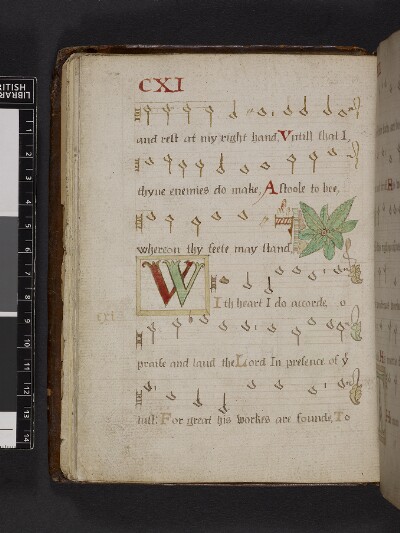 CXI
and rest at my right hand, Untill that I,
thyne enemies do make, A stoole to bee,
whereon thy feete may stand
With heart I do accorde, o
cxi
praise and laud the Lord In presence of y
iust. For great his workes are founde, To